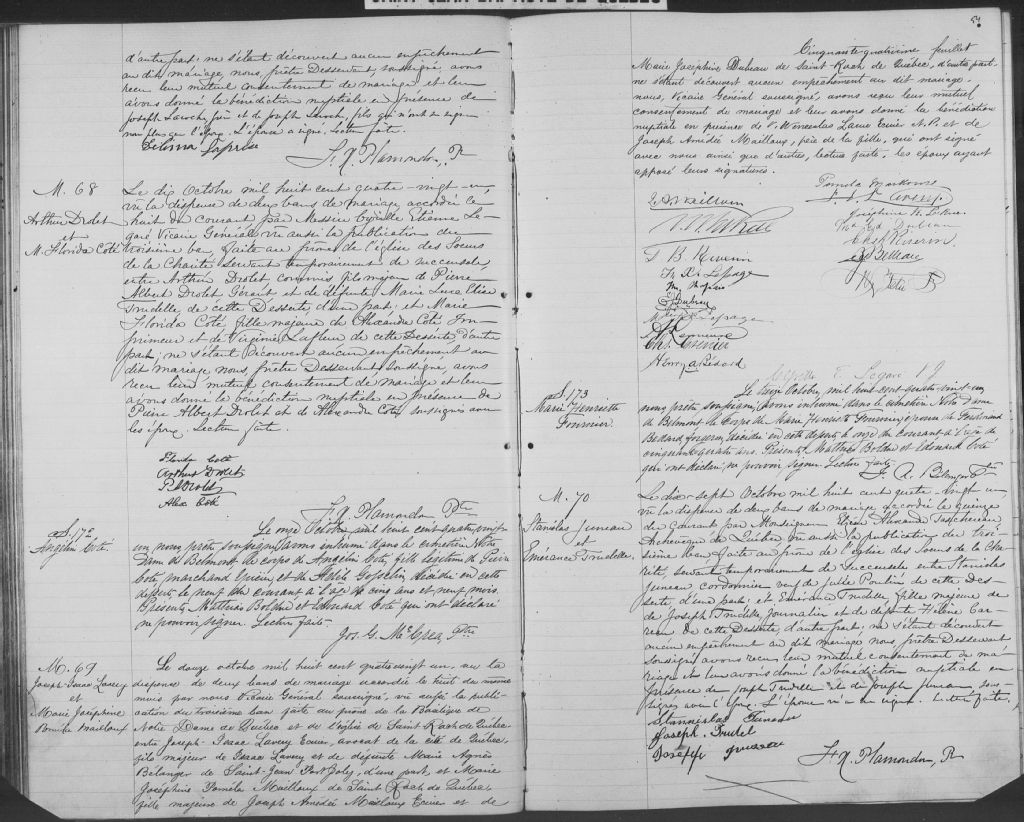 SAINT JEAN BAPTISTE DE QUÉBEC
d'autre part; ne s'étant découvert aucun empêchement
au dit mariage, nous, prêtre Desservant, soussigné, avons
reçu leur mutuel consentement de mariage et leur
avons donné la bénédiction nuptiale en présence de
Joseph Laroche, père et de Joseph Laroche, fils qui n'ont su signer
non plus que l'époux. L'épouse a signé. Lecture faite.
F. X. Plamondon, Ptr
M. 68
Arthur Drolet
et
M. Florida Coté
Le dix Octobre mil huit cent quatre-vingt-un,
vu la dispense de deux bans de mariage accordée ce
huit du courant par Messire Cyrille Etienne Le-
garé Vicaire Général vu aussi la publication du
troisième ban faite au prône de l'église des Soeurs
de la Charité servant temporairement de succursale,
entre Arthur Drolet commis fils majeur de Pierre
Albert Drolet Gérant et de défunte Marie Luce Elise
Trudelle de cette Desserte, d'une part, et Marie
Florida Coté fille majeure de Alexandre Coté Im-
primeur et de Virginie Lafleur de cette Desserte d'autre
part; ne s'étant découvert aucun empêchement au
dit mariage nous, prêtre Desservant Soussigné, avons
reçu leur mutuel consentement de mariage et leur
avons donné la bénédiction nuptiale en présence de
Pierre Albert Drolet et de Alexandre Coté soussignés avec
les époux. Lecture faite.
Florida Coté
Arthur Drolet
P. A. Drolet
Alex Coté
F. X. Plamondon Ptre
S. 172
Angelin Coté
Le onze Octobre mil huit cent quatre vingt
un nous prêtre soussigné avons inhumé dans le cimetière Notre
Dame de Belmont le corps de Angelin Coté, fils légitime de Pierre
Coté, marchand épicier et de Adèle Gosselin décédé en cette
desserte le neuf du courant à l'age de cinq ans et neuf mois.
Presents Matthias Bolduc et Edouard Coté qui ont déclaré
ne pouvoir signer. Lecture faite.
Jos. G. McCrea, Ptre
M. 69
Joseph-Isaac Lavery
et
Marie Joséphine
Paméla Mailloux
Le douze octobre mil huit cent quatrevingt un, vu la
dispense de deux bans de mariage accordée le huit du même
mois par nous Vicaire Général soussigné, vu aussi la publi-
cation du troisième ban faite au prône de la Basilique de
Notre Dame de Québec et de l'église de Saint-Roch de Québec
entre Joseph-Isaac Lavery Ecuier, avocat de la cité de Québec,
fils majeur de Isaac Lavery et de défunte Marie Agnès
Bélanger de Saint-Jean Port Joly, d'une part et Marie
Joséphine Paméla Mailloux de Saint Roch de Québec,
fille majeure de Joseph Amédée Mailloux Ecuier et de
54
Cinquante-quatrième feuillet
Marie Joséphine Dubeau de Saint-Roch de Québec, d'autre part
ne s'étant découvert aucun empêchement au dit mariage.
nous, Vicaire Général soussigné, avons reçu leur mutuel
consentement de mariage et leur avons donné la bénédiction
nuptiale en présence de V. Winceslas Larue Ecuier N. P. et de
Joseph Amédée Mailloux, père de la fille, qui ont signé
avec nous ainsi que d'autres, lecture faite. les époux ayant
apposé leurs signatures.
Henry A. Bédard
S. 173
Marie Henriette
Fournier.
Le treize Octobre, mil huit cent quatre-vingt-un
nous prêtre soussigné, avons inhumé dans le cimetière Notre Dame
de Belmont le corps de Marie Henriette Fournier, épouse de Ferdinand
Bédard forgeron, décédée en cette desserte le onze du courant à l'age de
cinquante quatre ans. Presents Matthias Bolduc et Edouard Coté
qui ont déclaré ne pouvoir signer. Lecture faite.
M. 70
Stanislas Juneau
et
Emérance Trudelle.
Le dix-sept Octobre mil huit cent quatre-vingt-un
vu la dispense de deux bans de mariage accordée le quinze
du courant par Monseigneur Elzéar Alexandre Taschereau,
Archevêque de Québec vu aussi la publication du troi-
sième ban faite au prône de l'église des Soeurs de la Cha-
rité, servant temporairement de Succursale entre Stanislas
Juneau cordonnier veuf de Julie Poulin de cette Des-
serte, d'une part; et Emérance Trudelle, fille majeure de
de Joseph Trudelle Journalier et de défunte Hélène Car-
reau de cette Desserte d'autre part; ne s'étant découvert
aucun empêchement au dit mariage nous prêtre Desservant
Soussigné avons reçu leur mutuel consentement de ma-
riage et leur avons donné la bénédiction nuptiale en
présence de Joseph Trudelle et de Joseph Juneau, sous-
signés avec l'époux. L'épouse n'a su signer. Lecture faite.
Stanislas Juneau
Joseph Trudel
Joseph Juneau
F. X. Plamondon, Ptr